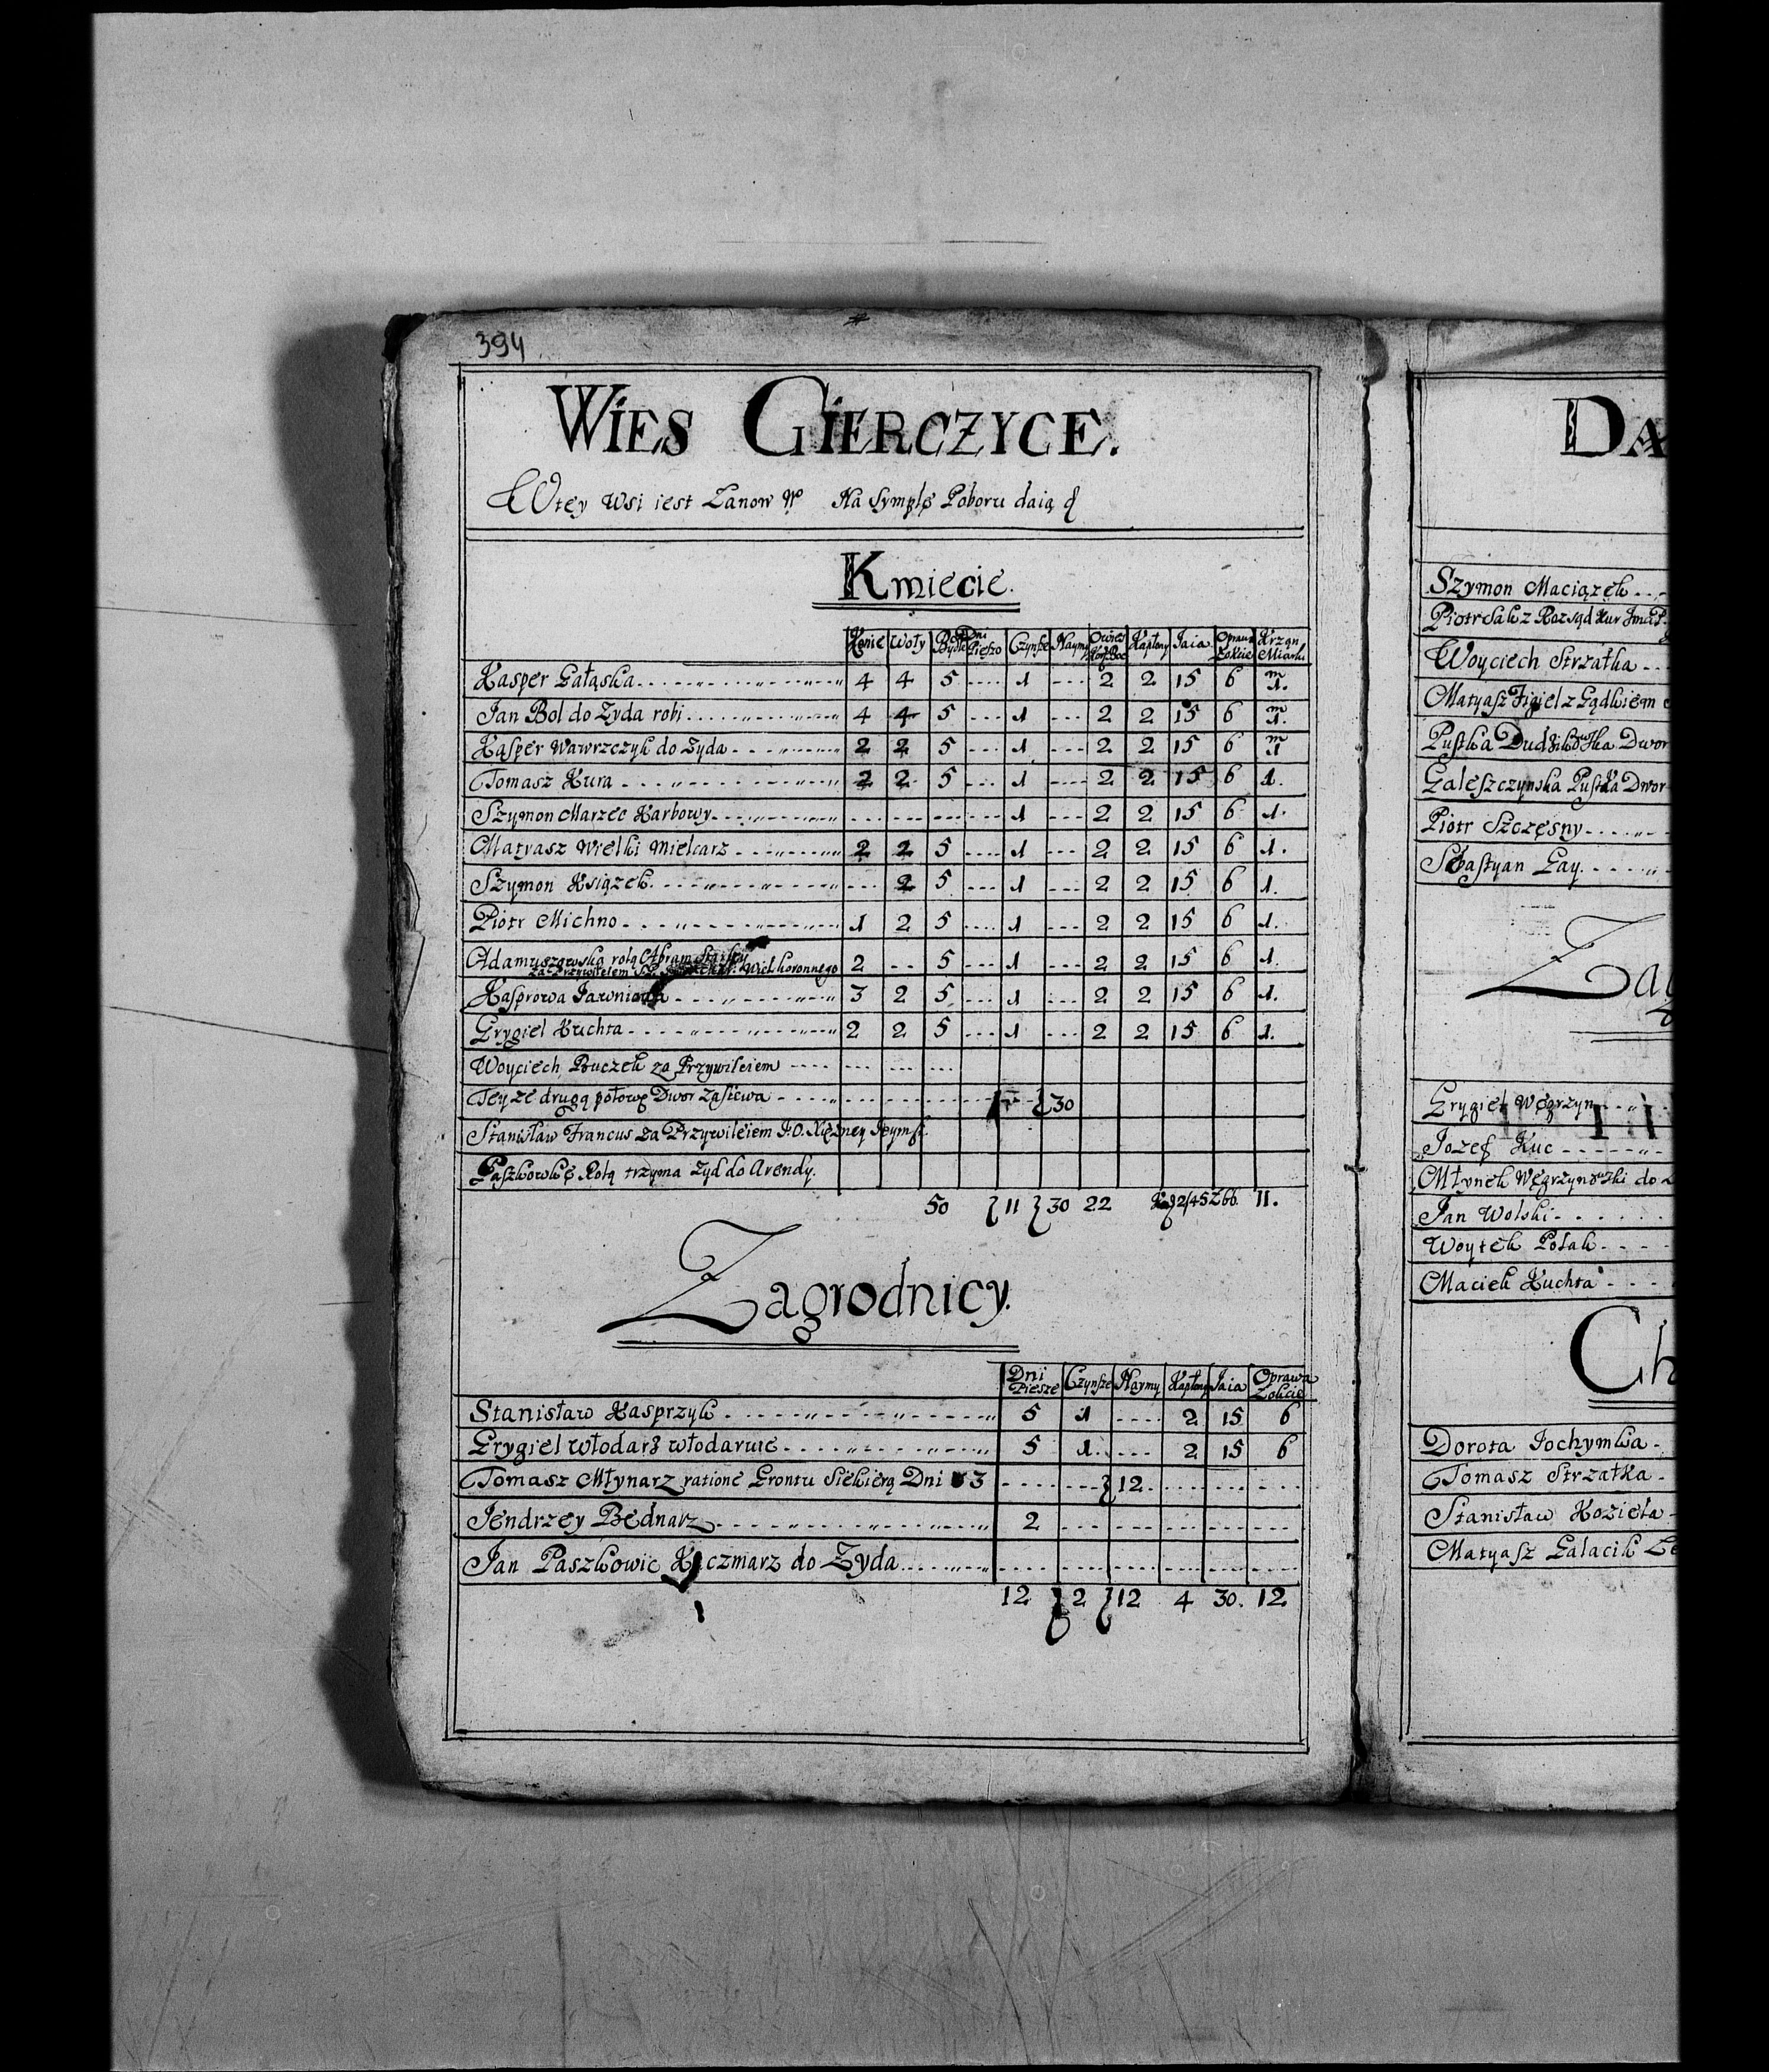 394
WIES GIERCZYCE.
Wtey wsi iest Łanow Nro Na Symplę Poboru daią
Kmiecie.
Konie Woły Bydłe Dni Pieszo Czynsze Naymy Owies Kapłony Iaia Oprawa Łokcie Krząn Miarki
Kasper Gałąska 4 4 5 1 2 2 15 6 m 1.
Jan Bol do Zyda robi 4 4 5 1 2 2 15 6 m 1.
Kasper Wawrzczyk do Zyda 2 2 5 1 2 2 15 6 m 1
Tomasz Kura 2 2 5 1 2 2 15 6 1.
Szymon Marzec Karbowy 1 2 2 15 6 1.
Matyasz Wielki Mielcarz 2 2 5 1 2 2 15 6 1.
Szymon Ksiązek 2 5 1 2 2 15 6 1.
Piotr Michno 1 2 5 1 2 2 15 6 1.
Adamuszowska rolą Abram 2 5 1 2 2 15 6 1.
za Przywileiem Wiel. koronnego
Kasprowa 3 2 5 1 2 2 15 6 1.
Grygiel Kuchta 2 2 5 1 2 2 15 6 1.
Woyciech Buczek za Przywileiem
Teyze drugą połowę Dwor zasiewa 30
Stanisław Francus za Przywileiem J.O. Xiężney Jeymsi
Paszkowkę Rolą trzyma Zyd do Arendy.
50 11 30 22 245 66 11.
Zagrodnicy.
Dni Piesze Czynsze Naymy Kapłony Iaia Oprawa Łokcie
Stanisław Kasprzyk 5 1 2 15 6
Grygiel Włodarz włodaruie 5 1. 2 15 6
Tomasz Młynarz ratione Grontu Siekierą Dni 3 12
Jendrzey Bednarz 2
Jan Paszkowic Kaczmarz do Zyda
12 2 12 4 30. 12
DA
Szymon Maciązek
Piotr Salcz
Woyciech Strzałka
Matyasz Figiel z Gądkiem
Pustka Dwor
Galeszczynska Pustka Dwor
Piotr Szczęsny
Sebastyan Gay.
Zag
Grygiel Węgrzyn
Jozef Kuc
Młynek Węgrzynowski do
Jan Wolski
Woytek Polak
Maciek Kuchta
Ch
Dorota Jochymka
Tomasz Strzałka
Stanisław Kozieła
Matyasz Galacik